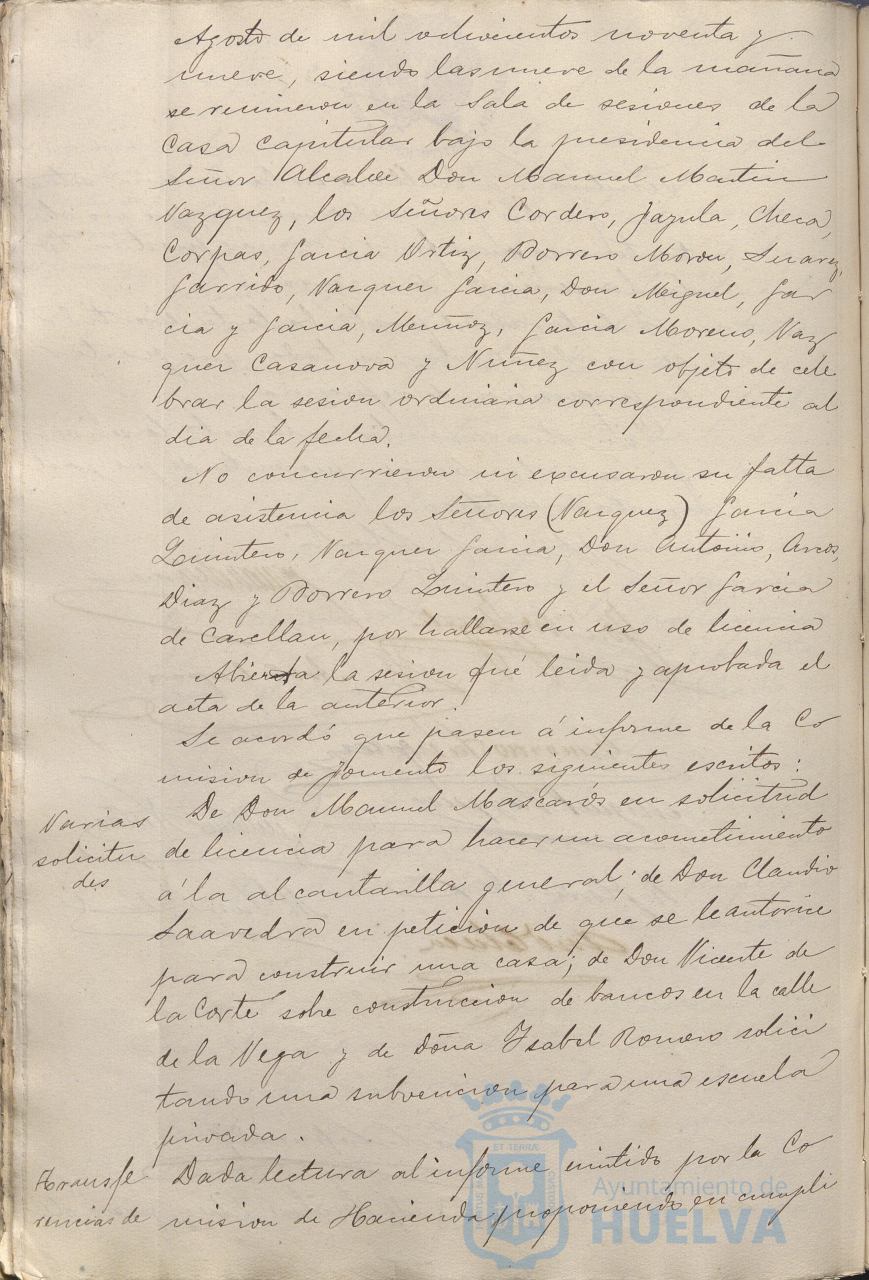 Agosto de mil ochocientos noventa y
nueve, siendo las nueve de la mañana
se reunieron en la Sala de sesiones de la
Casa capitular bajo la presidencia del
Señor Alcalde Don Manuel Martin
Vazquez, los Señores Cordero, Jazula, Checa,
Corpas, Garcia Ortiz, Borrero Moron, Suarez,
Garrido, Vazquez Garcia, Don Miguel, Gar
cia y Garcia, Muñoz, Garcia Moreno, Vaz
quez Casanova y Nuñez con objeto de cele
brar la sesion ordinaria correspondiente al
dia de la fecha.
No concurrieron ni excusaron su falta
de asistencia los Señores (Vazquez) Garcia
Quintero, Vazquez Garcia, Don Antonio, Arcos,
Diaz y Borrero Quintero y el Señor Garcia
de Carellan, por hallarse en uso de licencia
Abierta la sesion fué leida y aprobada el
acta de la anterior.
Se acordó que pasen á informe de la Co
mision de Fomento los siguientes escritos:
Varias
solicitu
des
De Don Manuel Mascarós en solicitud
de licencia para hacer un acometimiento
á la alcantarilla general; de Don Claudio
Saavedra en peticion de que se le autorice
para construir una casa; de Don Vicente de
la Corte sobre construccion de bancos en la calle
de la Vega y de Doña Ysabel Romero solici
tando una subvencion para una escuela
privada.
Transfe
rencias de
Dada lectura al informe emitido por la Co
mision de Hacienda proponiendo en cumpli
Ayuntamiento de
HUELVA